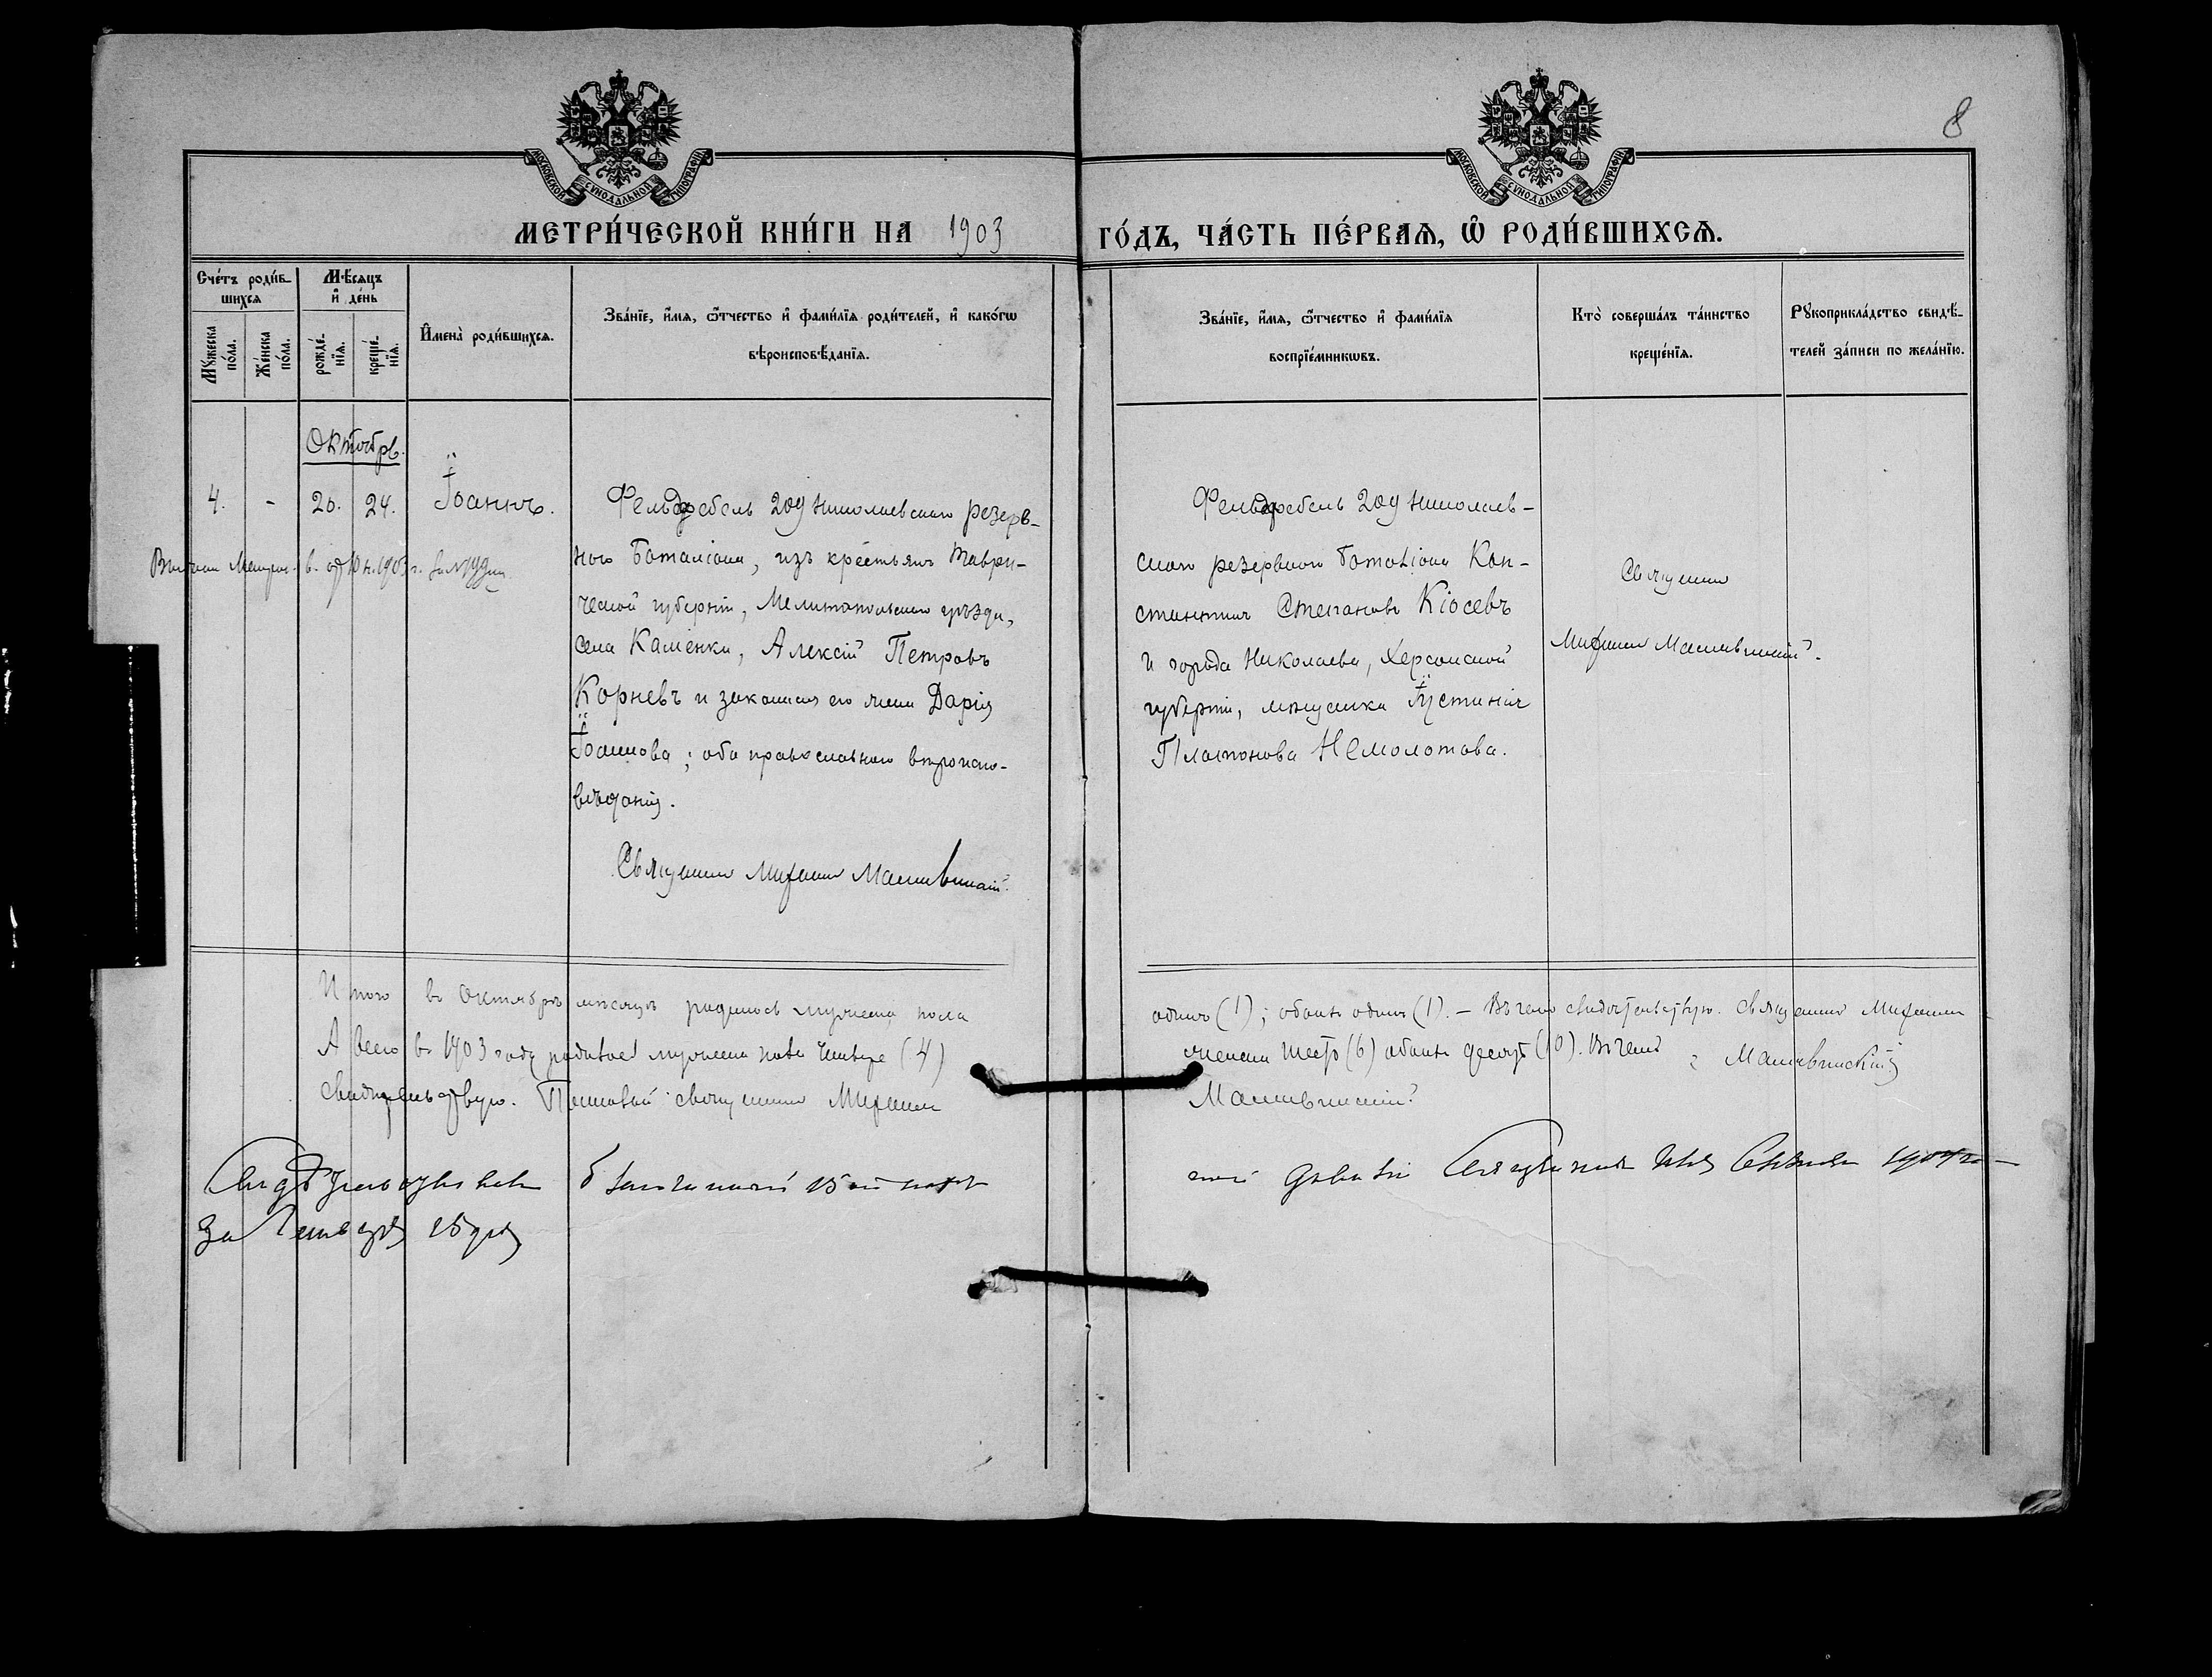 8
МОСКОВСКОЙ СУНОДАЛЬНОЙ ТИПОГРАФІИ
МОСКОВСКОЙ СУНОДАЛЬНОЙ ТИПОГРАФІИ
МЕТРИ́ЧЕСКОЙ КНИ́ГИ НА 1903 ГО́ДЪ, ЧА́СТЬ ПЕ́РВАѦ, Ѡ РОДИ́ВШИХСѦ.
Сче́тъ роди́в-
шихсѧ
Мꙋ́жеска по́ла.
Же́нска по́ла.
Мѣ́сѧцъ
и҆ де́нь
рожде́-
нїѧ.
креще́-
нїѧ.
И҆мена̀ роди́вшихсѧ.
Зва́нїе, и҆́мѧ, ѻ҆́тчество и҆ фами́лїѧ роди́телей, и҆ како́гѡ
вѣроисповѣ́данїѧ.
Зва́нїе, и҆́мѧ, ѻ҆́тчество и҆ фами́лїѧ
воспрїе́мникѡвъ.
Кто̀ соверша́лъ та́инство
креще́нїѧ.
Рꙋкоприкла́дство свидѣ́-
телей за́писи по жела́нїю.
Октябрь.
4. - 20. 24. Іоаннъ.
Фельдфебель 209 Николаевскаго резерв-
наго баталіона, изъ крестьянъ Таври-
ческой губерніи, Мелитопольскаго уѣзда,
села Каменки, Алексій Петровъ
Корневъ и законная его жена Дарія
Іоаннова; оба православнаго вѣроиспо-
вѣданія.
Священникъ Михаилъ
Фельдфебель 209 Николаев-
скаго резервнаго баталіона Кон-
стантинъ Степановъ Кіосевъ
и города Николаева, Херсонской
губерніи, мѣщанка Іустинія
Платонова Немолотова.
Священникъ
Михаилъ
1903 г.
Итого въ Октябрѣ мѣсяцѣ родилось мужеска пола
одинъ (1); обоихъ одинъ (1). - Въ чемъ свидѣтельствую. Священникъ Михаилъ
А всего въ 1903 году родилось мужеска пола четыре (4)
женска шесть (6) обоихъ десять (10). Въ чемъ
свидѣтельствую. Полковой священникъ Михаилъ
1904 г.